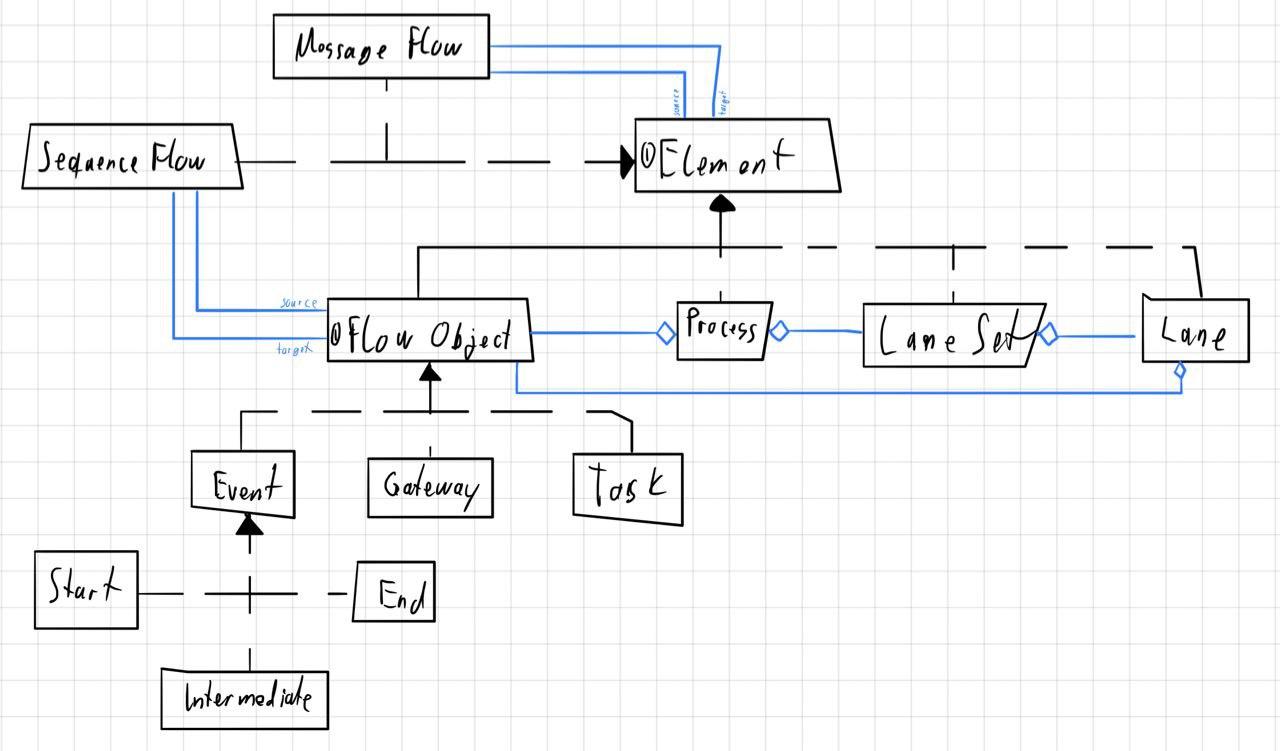 Message Flow
source
target
Sequence Flow
① Element
source
① Flow Object
target
Process
Lane Set
Lane
Event
Gateway
Task
Start
End
Intermediate